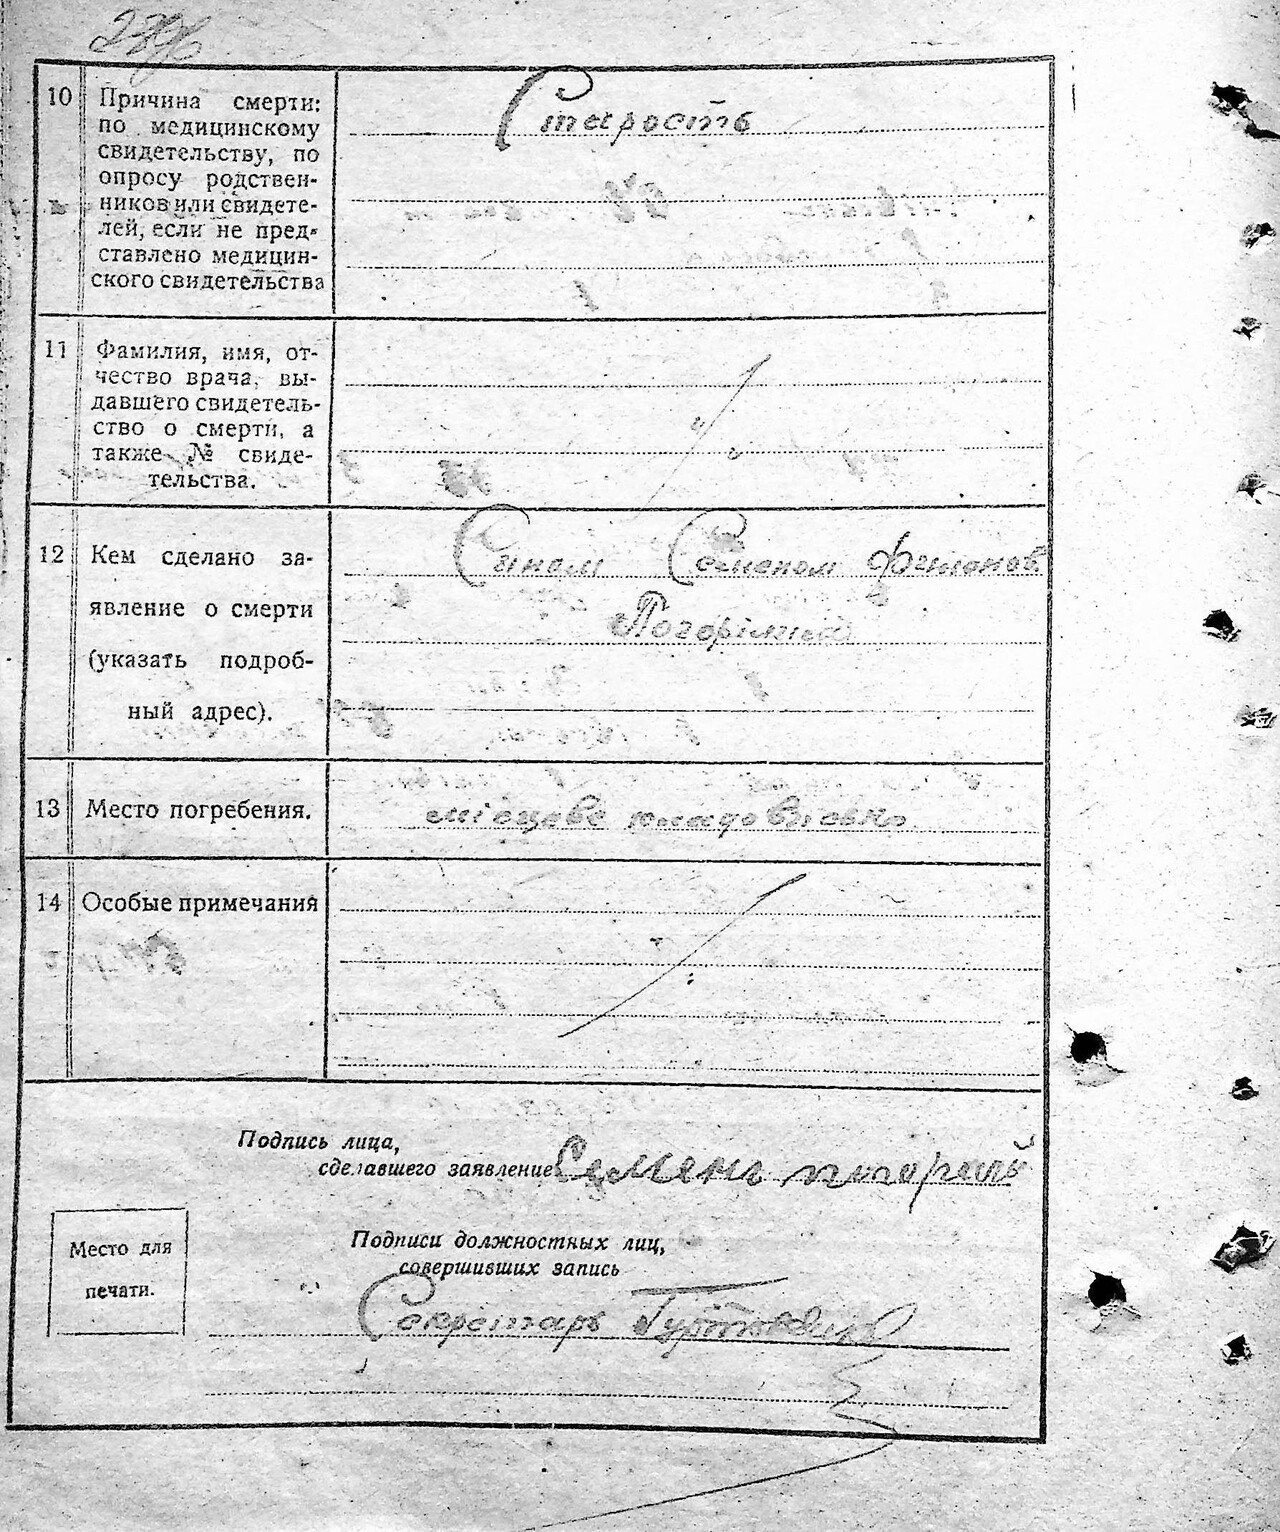 10 Причина смерти:
по медицинскому
свидетельству, по
опросу родствен-
ников или свидете-
лей, если не пред-
ставлено медицин-
ского свидетельства
Старость
11 Фамилия, имя, от-
чество врача, вы-
давшего свидетель-
ство о смерти, а
также № свиде-
тельства.
12 Кем сделано за-
явление о смерти
(указать подроб-
ный адрес).
Сином Семеном Филонов.
Погорілий
13 Место погребения.
місцеве кладовисько
14 Особые примечания
Подпись лица,
сделавшего заявление
Семень
Подписи должностных лиц,
совершивших запись
Место для
печати.
Секретарь